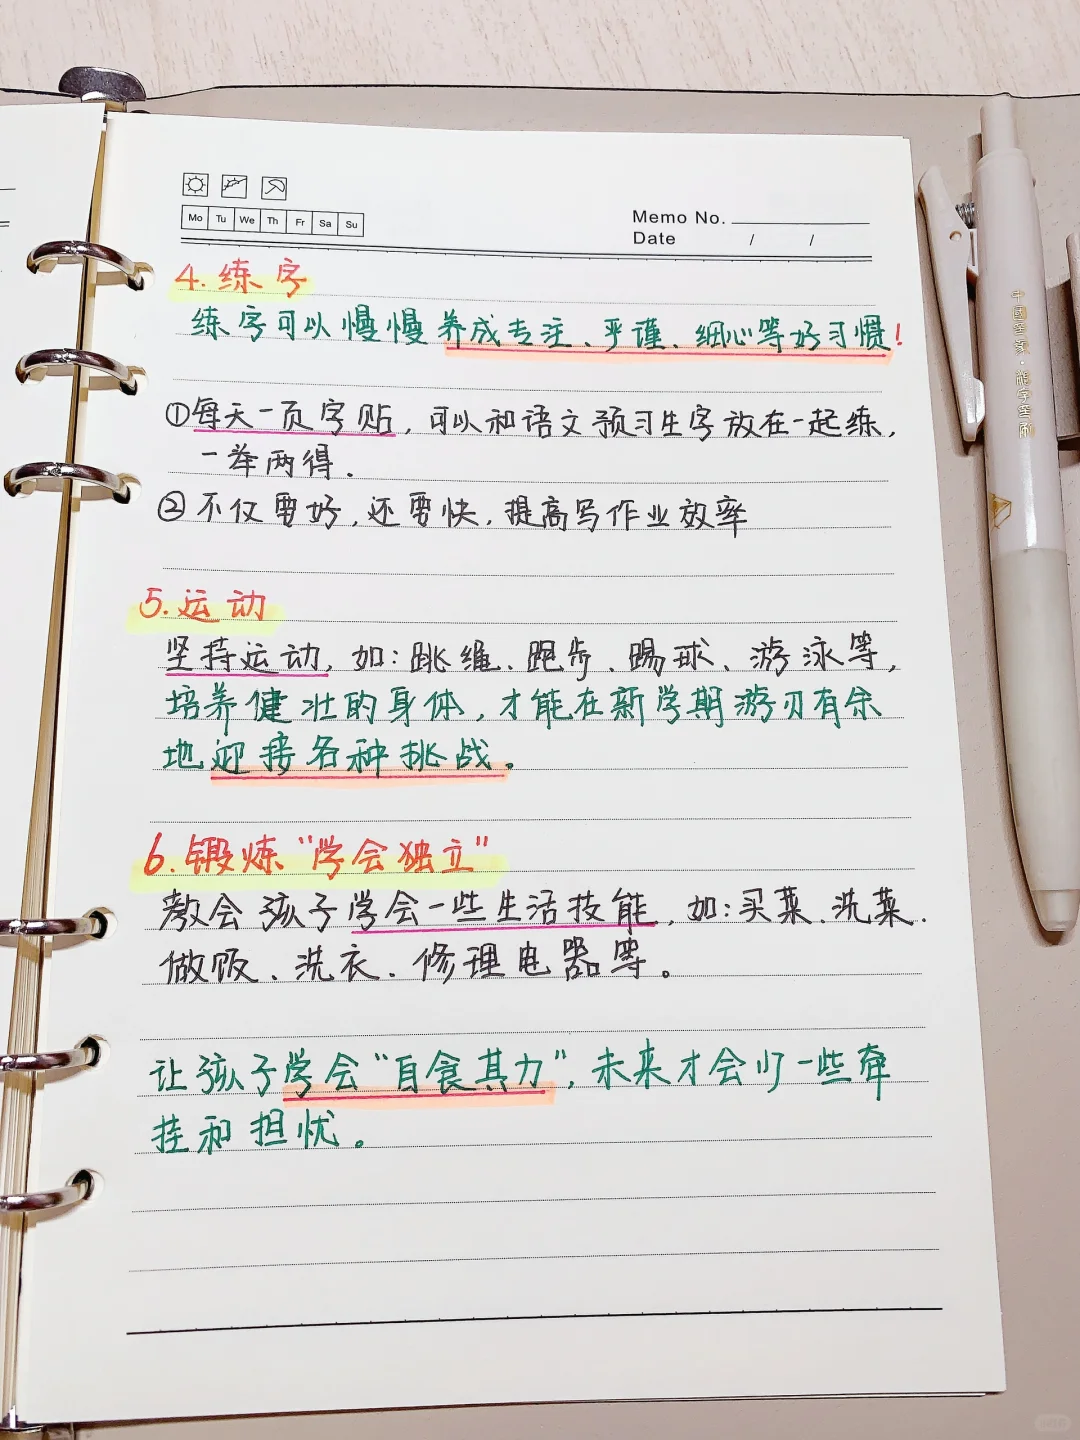 Mo Tu We Th Fr Sa Su
Memo No.
Date / /
4.练字
练字可以慢慢养成专注、严谨、细心等好习惯!
①每天一页字贴,可以和语文预习生字放在一起练,
一举两得.
②不仅要好,还要快,提高写作业效率
5.运动
坚持运动,如:跳绳、跑步、踢球、游泳等,
培养健壮的身体,才能在新学期游刃有余
地迎接各种挑战。
6.锻炼“学会独立”
教会孩子学会一些生活技能,如:买菜、洗菜、
做饭、洗衣、修理电器等。
让孩子学会“自食其力”,未来才会少一些牵
挂和担忧。